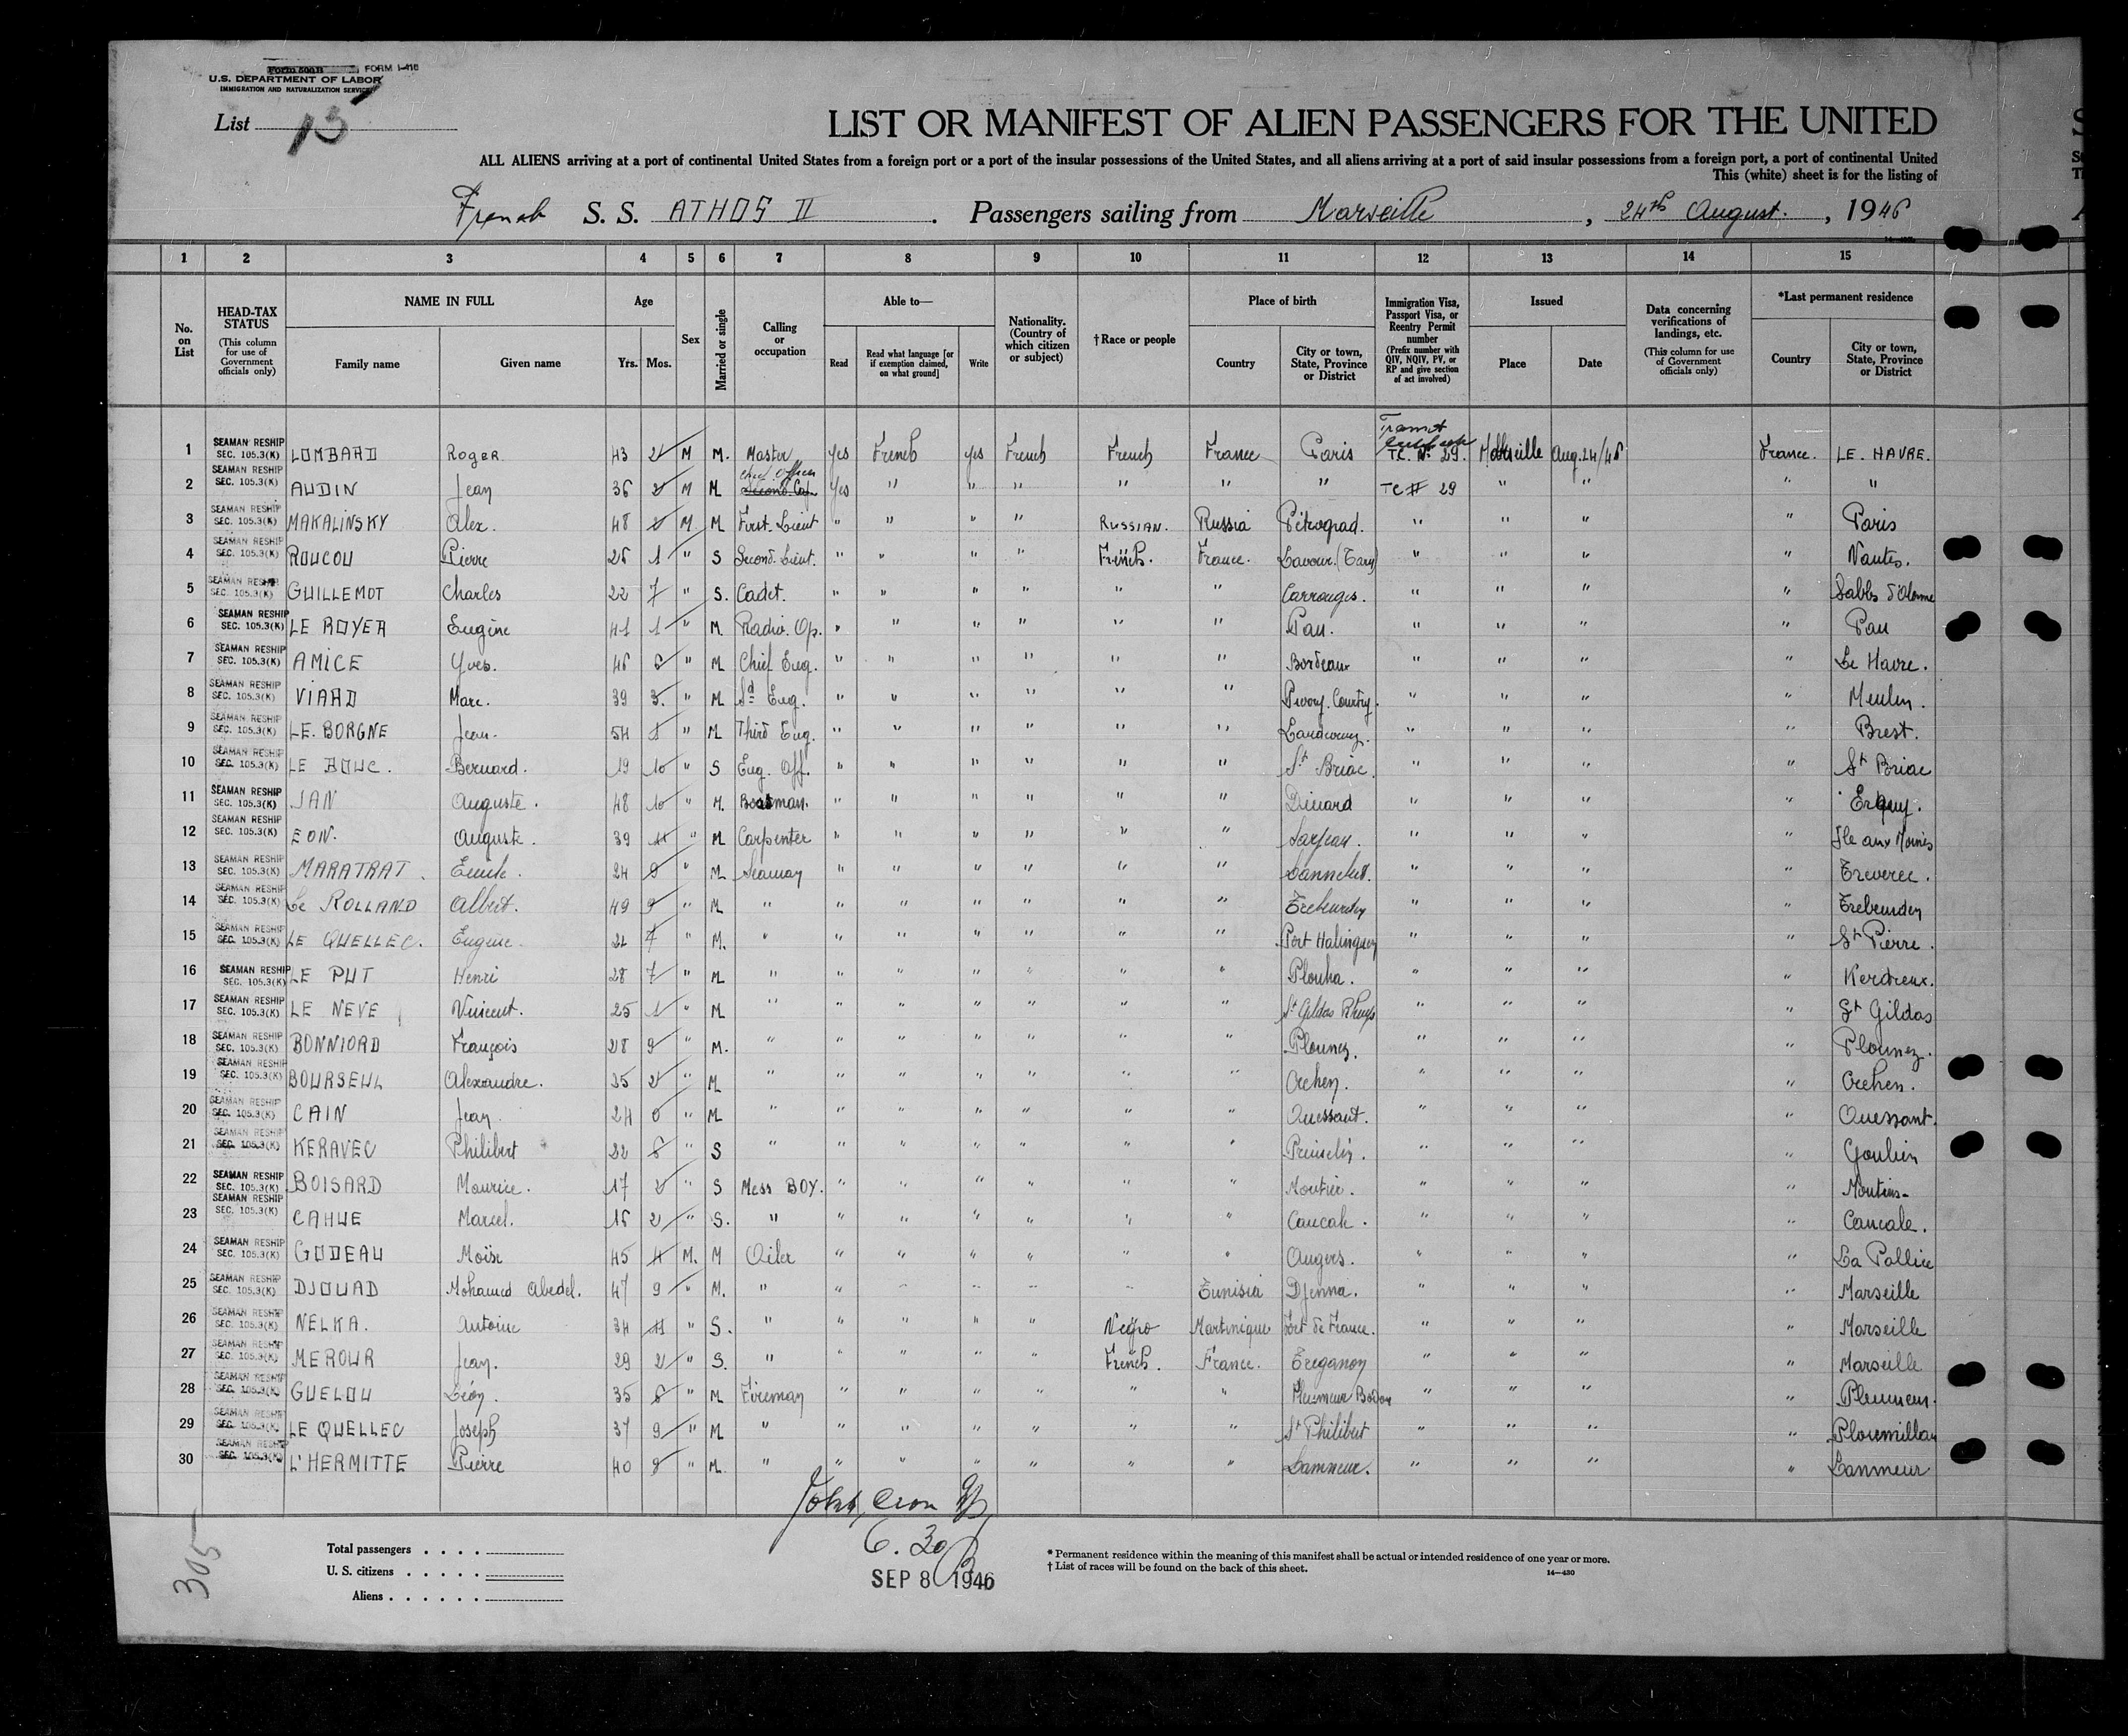 Form 500B FORM I-418
U.S. DEPARTMENT OF LABOR
IMMIGRATION AND NATURALIZATION SERVICE
List 13
LIST OR MANIFEST OF ALIEN PASSENGERS FOR THE UNITED
ALL ALIENS arriving at a port of continental United States from a foreign port or a port of the insular possessions of the United States, and all aliens arriving at a port of said insular possessions from a foreign port, a port of continental United
This (white) sheet is for the listing of
French S. S. ATHOS II . Passengers sailing from Marseille , 24th August. , 1946
1 2 3 4 5 6 7 8 9 10 11 12 13 14 15
No. on List
HEAD-TAX STATUS (This column for use of Government officials only)
NAME IN FULL Family name Given name
Age Yrs. Mos.
Sex
Married or single
Calling or occupation
Able to— Read Read what language [or if exemption claimed, on what ground] Write
Nationality. (Country of which citizen or subject)
†Race or people
Place of birth Country City or town, State, Province or District
Immigration Visa, Passport Visa, or Reentry Permit number (Prefix number with QIV, NQIV, PV, or RP and give section of act involved)
Issued Place Date
Data concerning verifications of landings, etc. (This column for use of Government officials only)
*Last permanent residence Country City or town, State, Province or District
Transit
1 SEAMAN RESHIP SEC. 105.3(K) LOMBARD Roger 43 2 M M. Master yes French yes French French France Paris TC. N° 29. Marseille Aug. 24/46 France. LE. HAVRE.
2 SEAMAN RESHIP SEC. 105.3(K) AUDIN Jean 36 2 M M Chief Officer Second Cap. yes " " " " " " TC # 29 " " " "
3 SEAMAN RESHIP SEC. 105.3(K) MAKALINSKY Alex. 48 M M First. Lieut " " " " RUSSIAN. Russia Pétrograd. " " " " Paris
4 SEAMAN RESHIP SEC. 105.3(K) ROUCOU Pierre 26 1 " S Second. Lieut. " " " " French. France. Lavour. (Tarn) " " " " Nantes.
5 SEAMAN RESHIP SEC. 105.3(K) GUILLEMOT Charles 22 7 " S. Cadet. " " " " " " Carrouges. " " " " Sables d'Olonne
6 SEAMAN RESHIP SEC. 105.3(K) LE ROYER Eugène 41 1 " M. Radio. Op. " " " " " " Pau. " " " " Pau
7 SEAMAN RESHIP SEC. 105.3(K) AMICE Yves. 46 6 " M Chief Eng. " " " " " " Bordeaux " " " " Le Havre.
8 SEAMAN RESHIP SEC. 105.3(K) VIARD Marc. 39 3. " M Sd Eng. " " " " " " " " " " Meulun.
9 SEAMAN RESHIP SEC. 105.3(K) LE. BORGNE Jean. 54 " M Third Eng. " " " " " " " " " " Brest.
10 SEAMAN RESHIP SEC. 105.3(K) LE BOUC. Bernard. 19 10 " S Eng. Off. " " " " " " St Briac. " " " " St Briac
11 SEAMAN RESHIP SEC. 105.3(K) JAN Auguste. 48 10 " M. Boatman. " " " " " " Dinard " " " " Erquy.
12 SEAMAN RESHIP SEC. 105.3(K) EON. Auguste. 39 11 " M Carpenter " " " " " " Sarzeau. " " " " Ile aux Moines
13 SEAMAN RESHIP SEC. 105.3(K) MARATRAT. Emile. 24 9 " M. Seaman " " " " " " " " " " Treverec.
14 SEAMAN RESHIP SEC. 105.3(K) Le ROLLAND Albert. 49 9 " M. " " " " " " " Trebeurden " " " " Trebeurden
15 SEAMAN RESHIP SEC. 105.3(K) LE QUELLEC. Eugène. 7 " M. " " " " " " " Port Halinguen " " " " St Pierre.
16 SEAMAN RESHIP SEC. 105.3(K) LE PUT Henri 28 7 " M " " " " " " " Plouha. " " " " Kerdreux.
17 SEAMAN RESHIP SEC. 105.3(K) LE NEVE Vincent. 25 1 " M " " " " " " " St Gildas Rhuys " " " " St Gildas
18 SEAMAN RESHIP SEC. 105.3(K) BONNIORD François 28 9 " M. " " " " " " " Plounez. " " " " Plounez.
19 SEAMAN RESHIP SEC. 105.3(K) BOURSEUL Alexandre. 35 2 " M " " " " " " " Crehen. " " " " Crehen.
20 SEAMAN RESHIP SEC. 105.3(K) CAIN Jean. 24 0 " M. " " " " " " " Ouessant. " " " " Ouessant.
21 SEAMAN RESHIP SEC. 105.3(K) KERAVEC Philibert 22 6 " S " " " " " " " Primelin. " " " " Goulien
22 SEAMAN RESHIP SEC. 105.3(K) BOISARD Maurice. 17 " S Mess BOY. " " " " " " Moutier. " " " "
23 SEAMAN RESHIP SEC. 105.3(K) CAHUE Marcel. 16 2 " S. " " " " " " " Cancale. " " " " Cancale.
24 SEAMAN RESHIP SEC. 105.3(K) GODEAU Moïse 45 4 M. M Oiler " " " " " " Angers. " " " " La Pallice
25 SEAMAN RESHIP SEC. 105.3(K) DJOUAD Mohamed Abedel. 47 9 " M. " " " " " " Tunisia Djenna. " " " " Marseille
26 SEAMAN RESHIP SEC. 105.3(K) NELKA. Antoine 34 11 " S. " " " " " Negro Martinique Fort de France. " " " " Marseille
27 SEAMAN RESHIP SEC. 105.3(K) MEROUR Jean. 29 2 " S. " " " " " French. France. Treganon " " " " Marseille
28 SEAMAN RESHIP SEC. 105.3(K) GUELOU Léon. 35 6 " M Fireman " " " " " " Pleumeur Bodou " " " " Pleumeur.
29 SEAMAN RESHIP SEC. 105.3(K) LE QUELLEC Joseph 37 9 " M " " " " " " " St Philibert " " " " Ploumillau
30 SEAMAN RESHIP SEC. 105.3(K) L'HERMITTE Pierre 40 8 " M. " " " " " " " Lanmeur. " " " " Lanmeur
6.30
SEP 8 1946
305
Total passengers
U. S. citizens
Aliens
* Permanent residence within the meaning of this manifest shall be actual or intended residence of one year or more.
† List of races will be found on the back of this sheet.
14—430